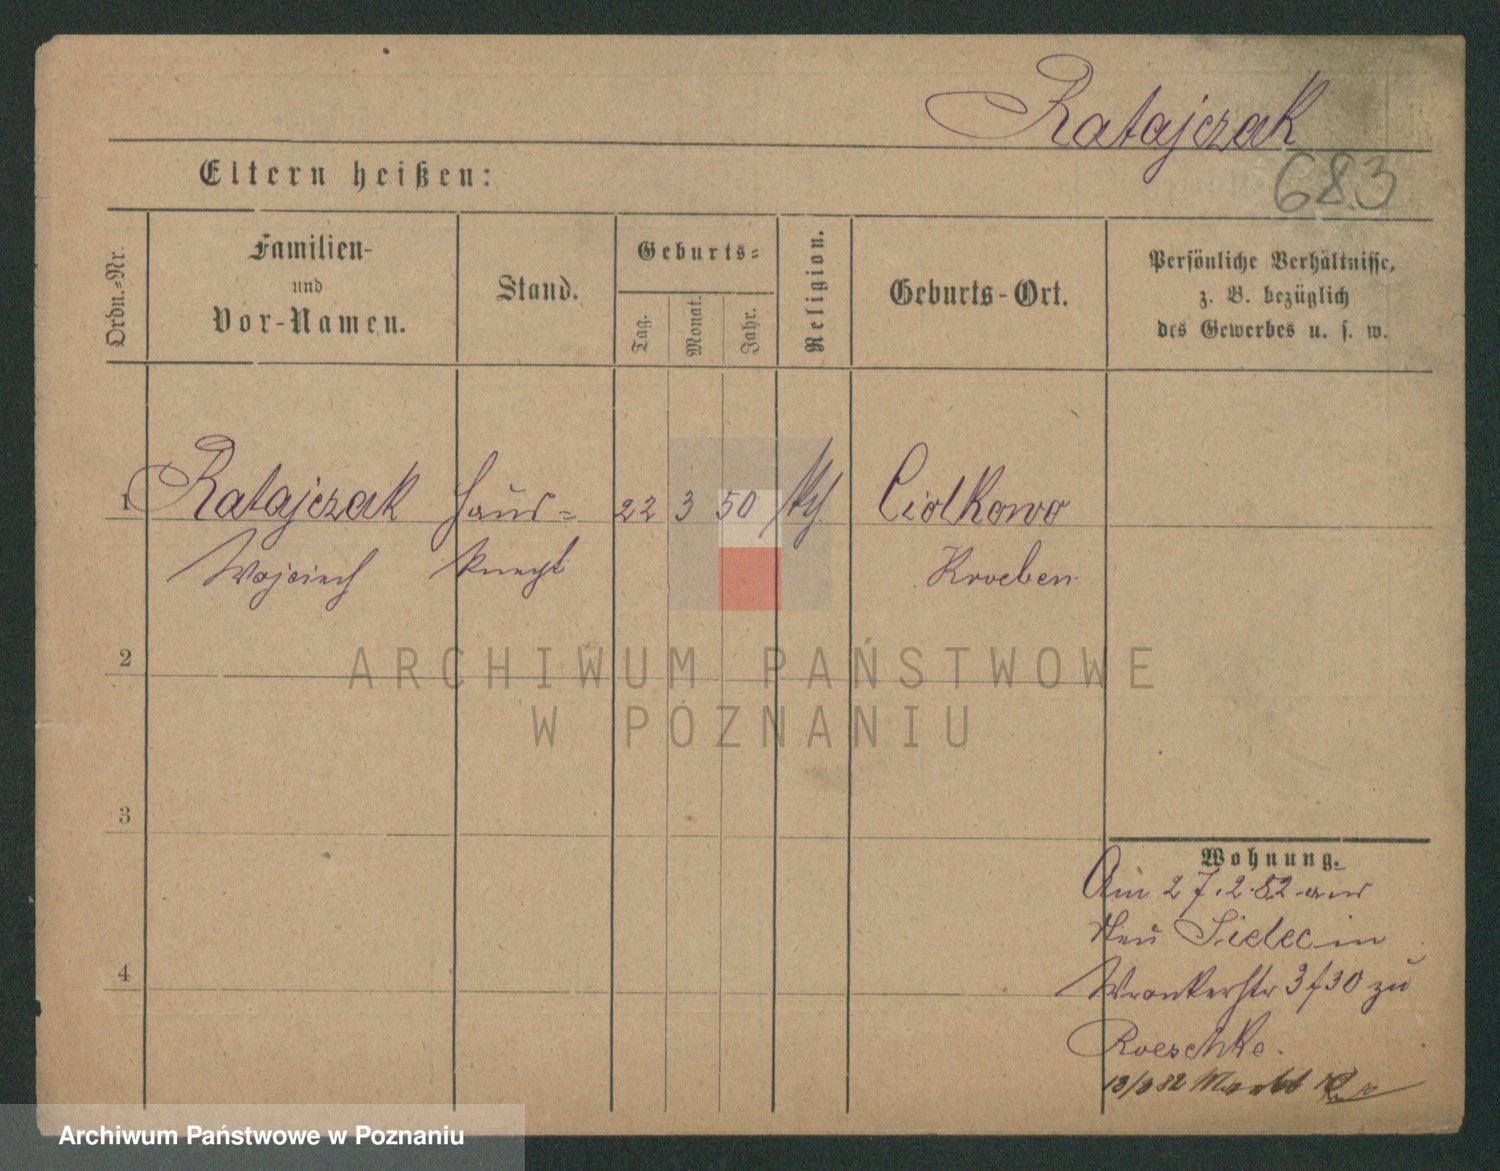 Ratajczak
683
Eltern heißen:
Ordn.-Nr.
Familien-
und
Vor-Namen.
Stand.
Geburts-
Tag.
Monat.
Jahr.
Religion.
Geburts-Ort.
Persönliche Verhältnisse,
z. B. bezüglich
des Gewerbes u. s. w.
1 Ratajczak Haus- 22 3 50 Ciolkowo
Wojciech knecht Kroeben
2
ARCHIWUM PAŃSTWOWE
W POZNANIU
3
4
Wohnung.
Am 27.2.82 aus
Neu Sielec in
Wronkerstr 3/30 zu
Roeschke.
13/3 82 Markt
Archiwum Państwowe w Poznaniu